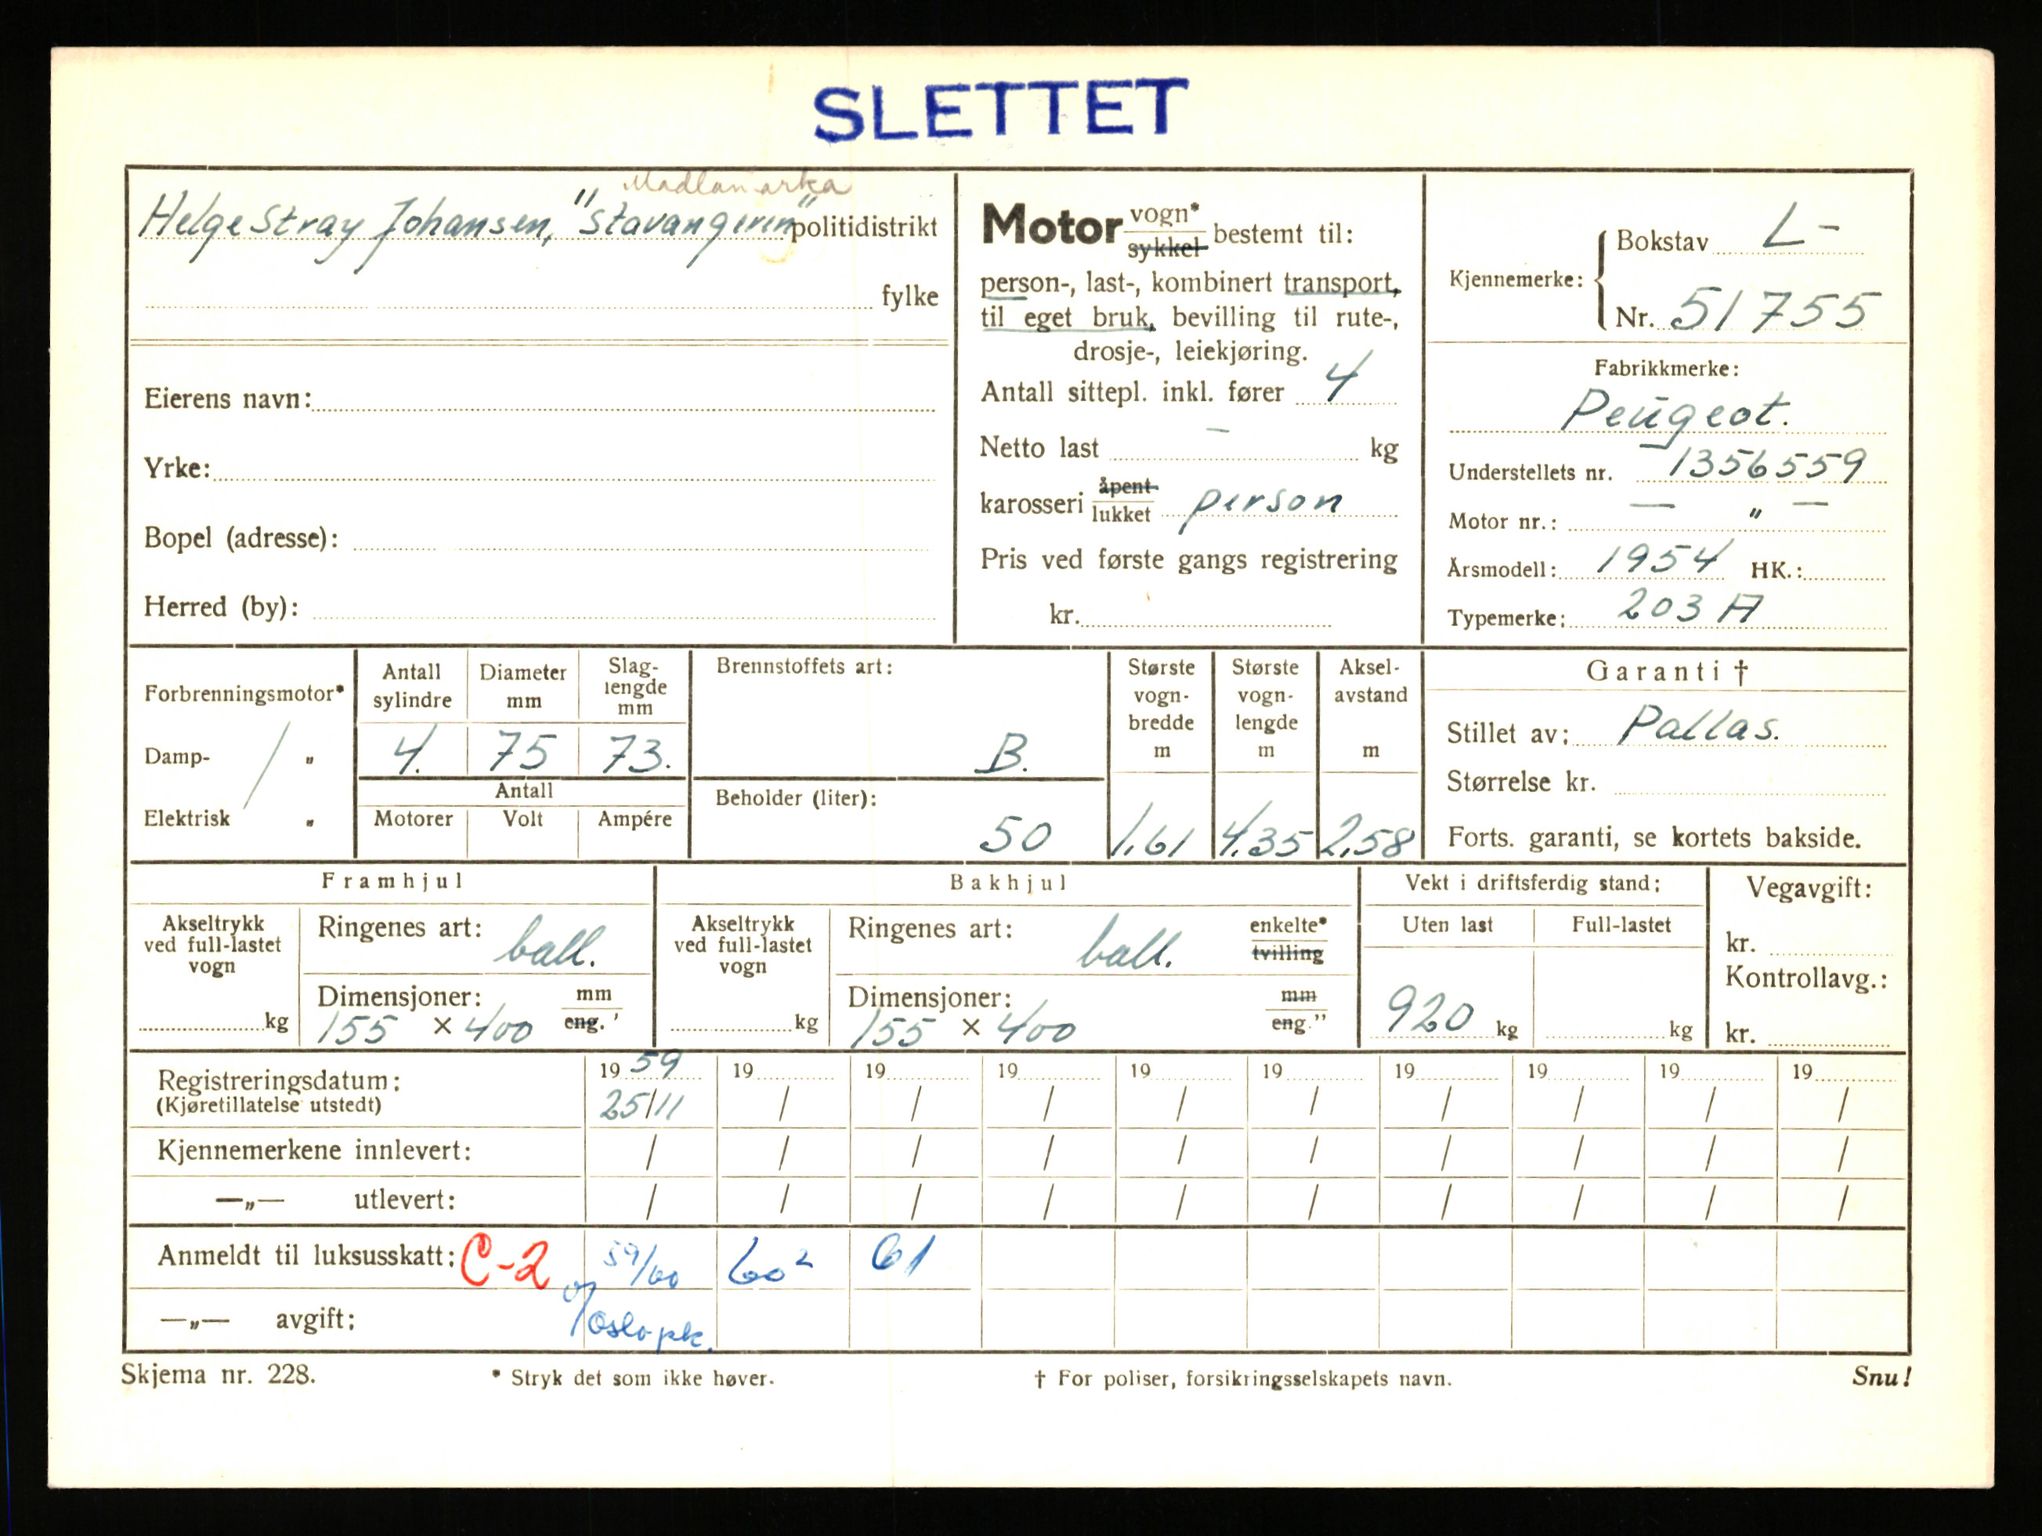 SLETTET
Madlamarka
Helge Stray Johansen, "Stavangeren" politidistrikt
fylke
Eierens navn:
Yrke:
Bopel (adresse):
Herred (by):
Motor vogn* sykkel bestemt til:
person-, last-, kombinert transport,
til eget bruk, bevilling til rute-,
drosje-, leiekjøring.
Antall sittepl. inkl. fører 4
Netto last - kg
karosseri åpent lukket person
Pris ved første gangs registrering
kr.
Kjennemerke: Bokstav L-
Nr. 51755
Fabrikkmerke:
Peugeot.
Understellets nr. 1356559
Motor nr.: — „ —
Årsmodell: 1954 HK.:
Typemerke: 203 A
Forbrenningsmotor*
Damp- / „
Elektrisk „
Antall sylindre 4.
Diameter mm 75
Slaglengde mm 73.
Antall
Motorer Volt Ampére
Brennstoffets art:
B.
Beholder (liter):
50
Største vogn-bredde m 1,61
Største vogn-lengde m 4.35
Aksel-avstand m 2,58
Garanti †
Stillet av: Pallas.
Størrelse kr.
Forts. garanti, se kortets bakside.
Framhjul
Akseltrykk ved full-lastet vogn
kg
Ringenes art: ball.
Dimensjoner: mm eng. '
155 × 400
Bakhjul
Akseltrykk ved full-lastet vogn
kg
Ringenes art: ball. enkelte* tvilling
Dimensjoner: mm eng."
155 × 400
Vekt i driftsferdig stand:
Uten last Full-lastet
920 kg kg
Vegavgift:
kr.
Kontrollavg.:
kr.
Registreringsdatum: 1959 19 19 19 19 19 19 19 19 19
(Kjøretillatelse utstedt) 25/11 / / / / / / / / /
Kjennemerkene innlevert: / / / / / / / / / /
—„— utlevert: / / / / / / / / / /
Anmeldt til luksusskatt: C-2 59/60 60² 61
—„— avgift: o/ Oslo pk.
Skjema nr. 228. * Stryk det som ikke høver. † For poliser, forsikringsselskapets navn. Snu!